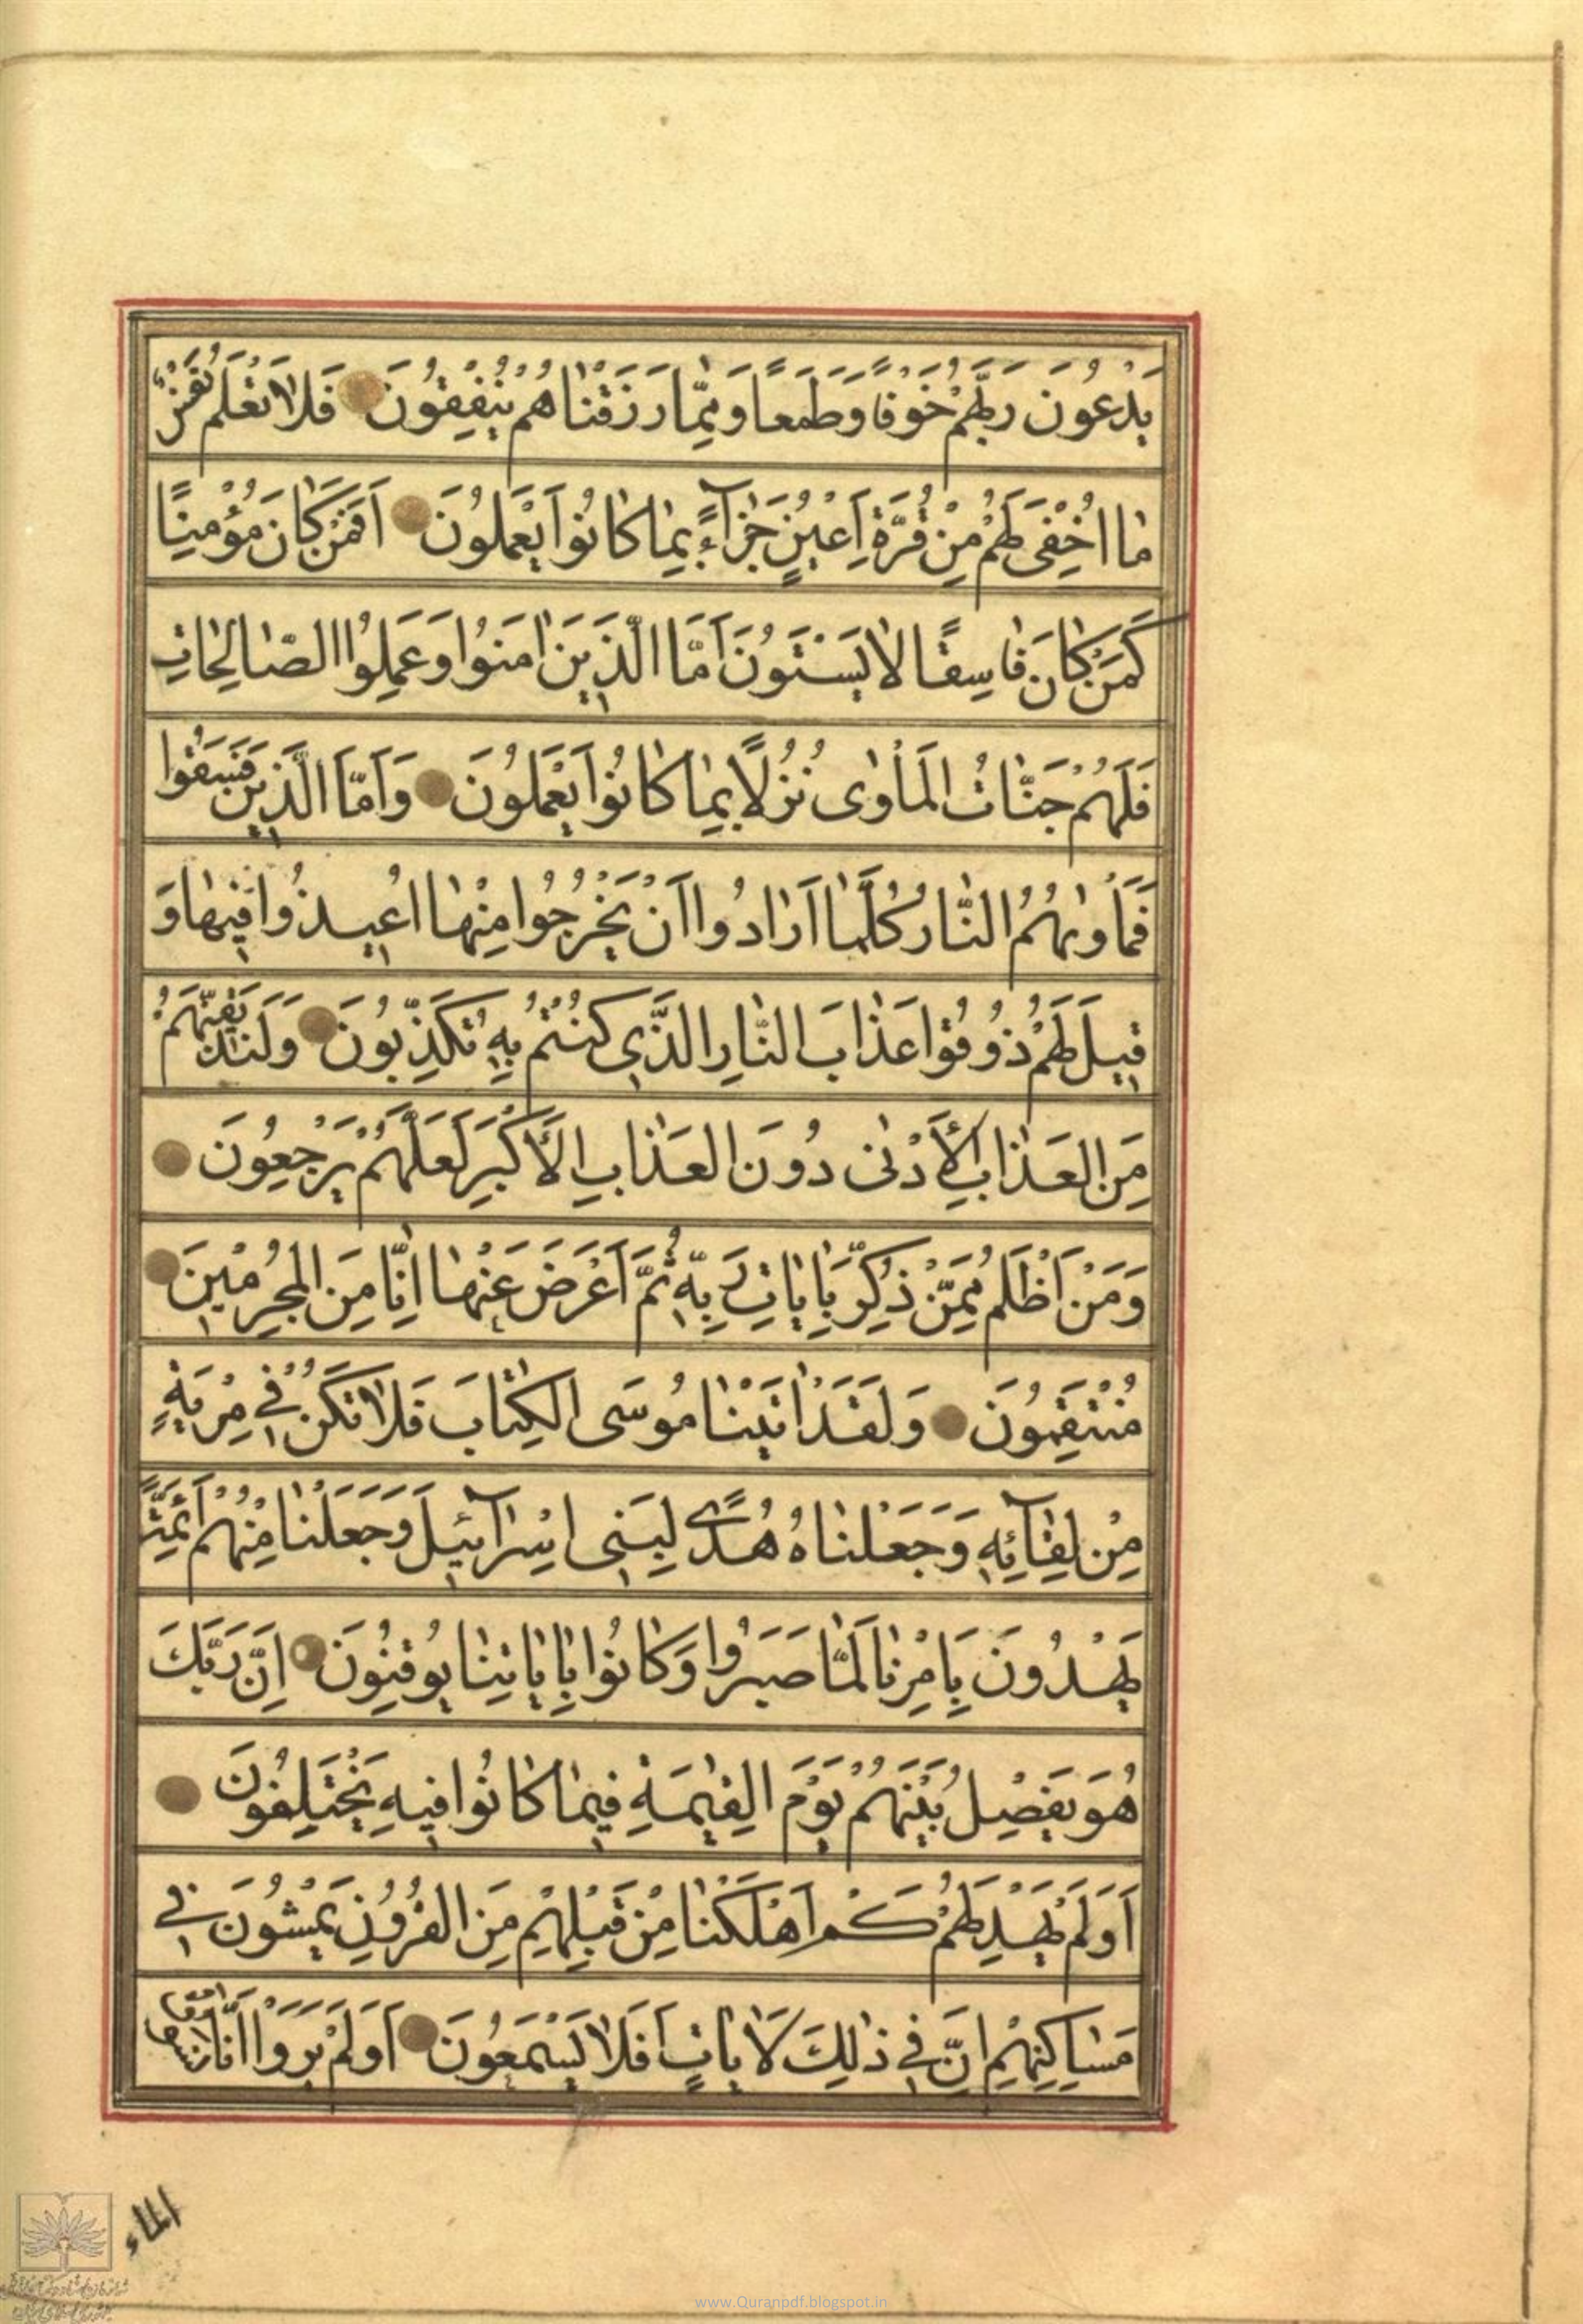 يَدْعُونَ رَبَّهُمْ خَوْفًا وَطَمَعًا وَمِمَّا رَزَقْنَاهُمْ يُنْفِقُونَ فَلَا تَعْلَمُ نَفْسٌ
مَا اُخْفِىَ لَهُمْ مِنْ قُرَّةِ اَعْيُنٍ جَزَآءً بِمَا كَانُوا يَعْمَلُونَ اَفَمَنْ كَانَ مُؤْمِنًا
كَمَنْ كَانَ فَاسِقًا لَا يَسْتَوُنَ اَمَّا الَّذِينَ اٰمَنُوا وَعَمِلُوا الصَّالِحَاتِ
فَلَهُمْ جَنَّاتُ الْمَأْوٰى نُزُلًا بِمَا كَانُوا يَعْمَلُونَ وَاَمَّا الَّذِينَ فَسَقُوا
فَمَأْوٰيهُمُ النَّارُ كُلَّمَا اَرَادُوا اَنْ يَخْرُجُوا مِنْهَا اُعِيدُوا فِيهَا وَ
قِيلَ لَهُمْ ذُوقُوا عَذَابَ النَّارِ الَّذِي كُنْتُمْ بِهِ تُكَذِّبُونَ وَلَنُذِيقَنَّهُمْ
مِنَ الْعَذَابِ الْاَدْنٰى دُونَ الْعَذَابِ الْاَكْبَرِ لَعَلَّهُمْ يَرْجِعُونَ
وَمَنْ اَظْلَمُ مِمَّنْ ذُكِّرَ بِاٰيَاتِ رَبِّهِ ثُمَّ اَعْرَضَ عَنْهَا اِنَّا مِنَ الْمُجْرِمِينَ
مُنْتَقِمُونَ وَلَقَدْ اٰتَيْنَا مُوسَى الْكِتَابَ فَلَا تَكُنْ فِي مِرْيَةٍ
مِنْ لِقَآئِهِ وَجَعَلْنَاهُ هُدًى لِبَنِى اِسْرَآئِيلَ وَجَعَلْنَا مِنْهُمْ اَئِمَّةً
يَهْدُونَ بِاَمْرِنَا لَمَّا صَبَرُوا وَكَانُوا بِاٰيَاتِنَا يُوقِنُونَ اِنَّ رَبَّكَ
هُوَ يَفْصِلُ بَيْنَهُمْ يَوْمَ الْقِيٰمَةِ فِيمَا كَانُوا فِيهِ يَخْتَلِفُونَ
اَوَلَمْ يَهْدِ لَهُمْ كَمْ اَهْلَكْنَا مِنْ قَبْلِهِمْ مِنَ الْقُرُونِ يَمْشُونَ فِي
مَسَاكِنِهِمْ اِنَّ فِي ذٰلِكَ لَاٰيَاتٍ اَفَلَا يَسْمَعُونَ اَوَلَمْ يَرَوْا اَنَّا نَسُوقُ
الماء
www.Quranpdf.blogspot.in